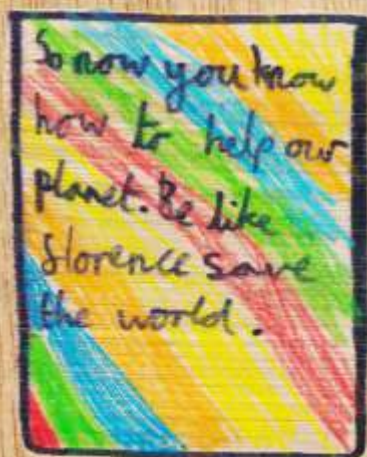 So now you know
how to help our
planet. Be like
florence save
the world.